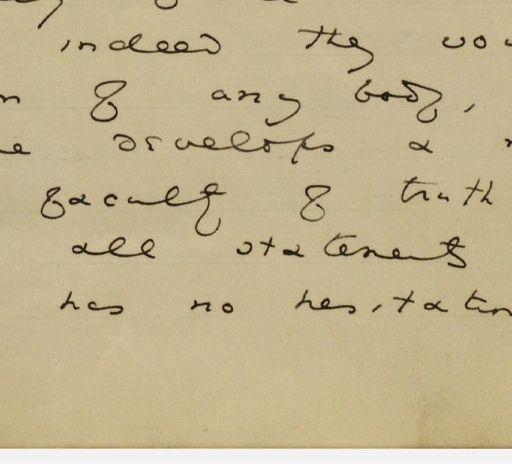 indeed they
of any body,
develops a
faculty of truth
all statements
has no hesitation